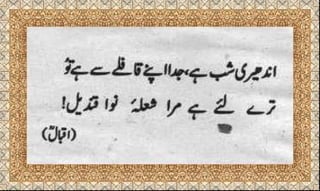 اندھیری شب ہے، جدا اپنے قافلے سے ہے تُو
ترے لئے ہے مرا شعلۂ نوا قندیل!
(اقبالؒ)